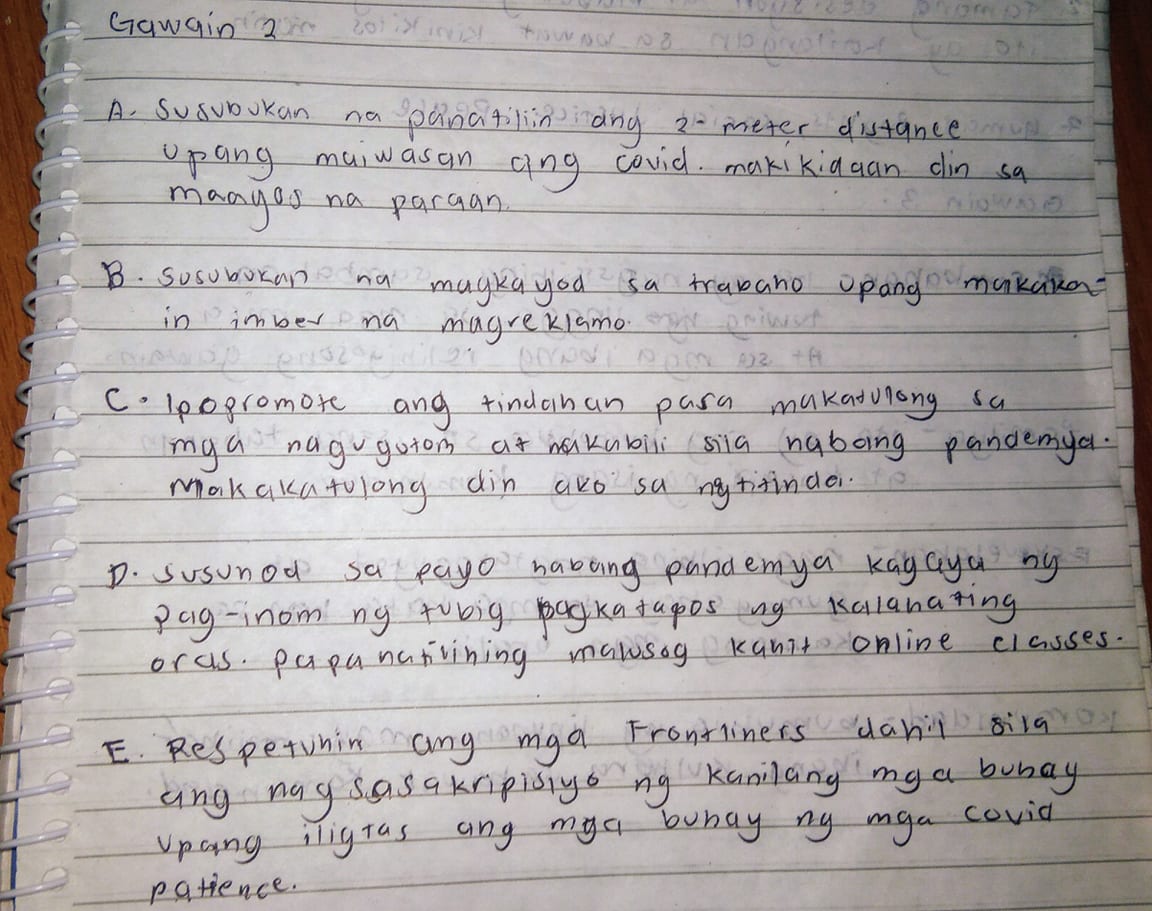 Gawain 2
A. Susubukan na panatiliin ang 2-meter distance
upang maiwasan ang covid. makikidaan din sa
maayos na paraan.
B. Susubukan na magkayod sa trabaho upang makaka-
in imbes na magreklamo.
C. Ipopromote ang tindahan para makatulong sa
mga nagugutom at makabili sila habang pandemya.
Makakatulong din ako sa ngtitinda.
D. Susunod sa payo habang pandemya kagaya ng
pag-inom ng tubig pagkatapos ng kalahating
oras. papanatilihing malusog kahit online classes.
E. Respetuhin ang mga Frontliners dahil sila
ang nagsasakripisiyo ng kanilang mga buhay
upang iligtas ang mga buhay ng mga covid
patience.